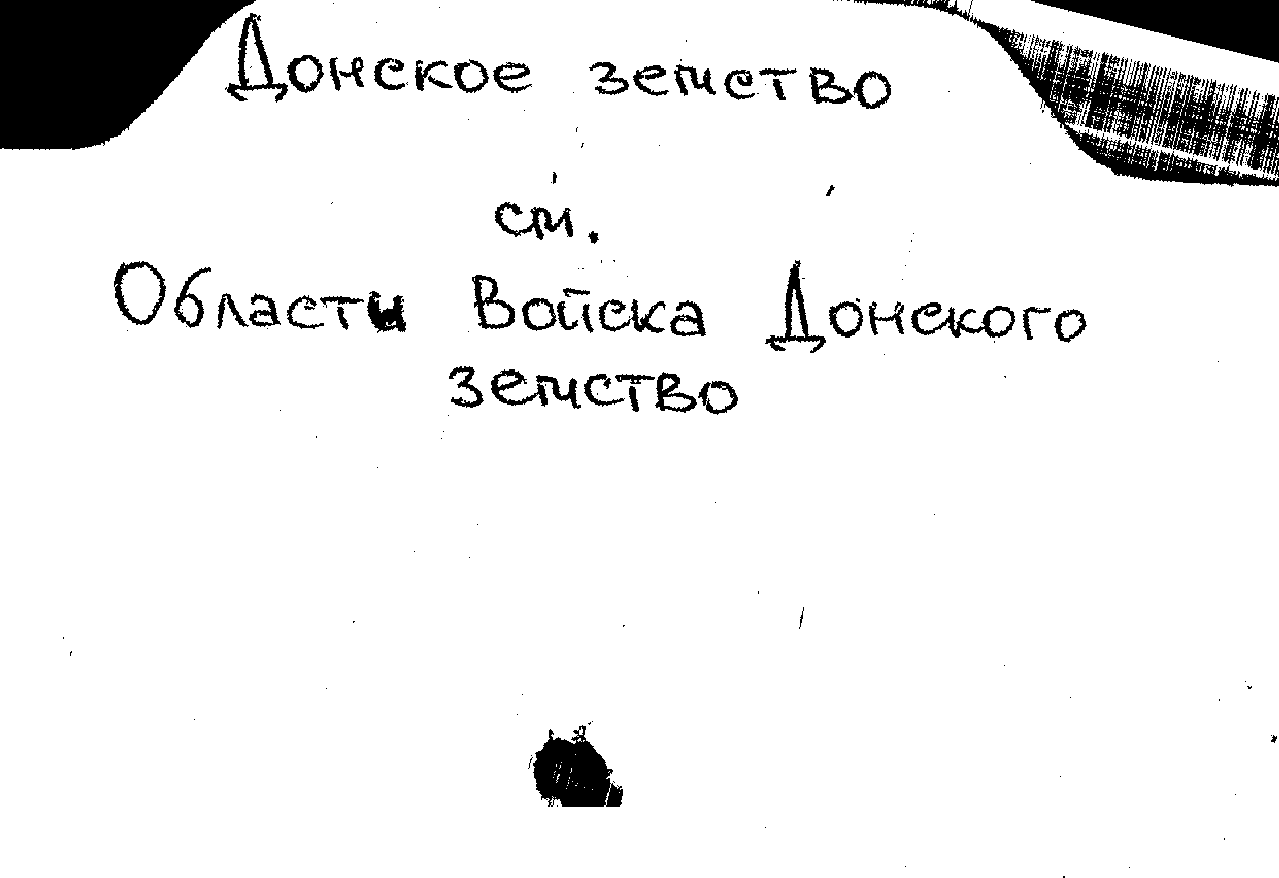 Донское земство
см.
Области Войска Донского
земство